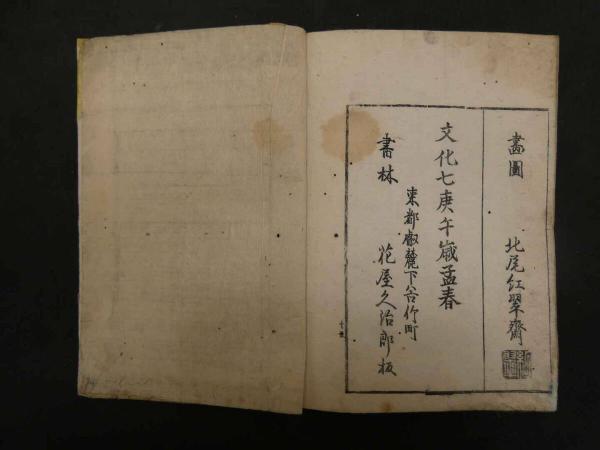 畵圖 北尾紅翠齋
文化七庚午歳孟春
東都叡麓下谷竹町
書林 花屋久治郎板